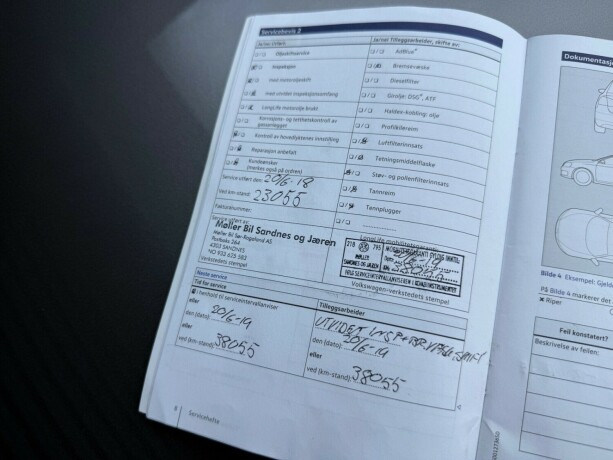 Servicebevis 2
Service utført
Oljeskiftservice
Inspeksjon
med motoroljeskift
med utvidet inspeksjonsomfang
LongLife motorolje brukt
Korrosjons- og tetthetskontroll av
gassanlegget
Kontroll av hovedlyktenes innstilling
Reparasjon anbefalt
Kundeønsker
(merkes også på ordren)
Service utført den: 20/6-18
Ved km-stand: 23055
Fakturanummer:
Service utført av:
Møller Bil Sandnes og Jæren
Møller Bil Sør-Rogaland AS
Postboks 364
4303 SANDNES
Verkstedets stempel
Tilleggsarbeider, skifte av:
AdBlue®
Bremsevæske
Dieselfilter
Girolje: DSG®, ATF
Haldex-kobling: olje
Profilkilereim
Luftfilterinnsats
Tetningsmiddelflaske
Støv- og pollenfilterinnsats
Tannreim
Tennplugger
LongLife mobilitetsgaranti
218 795
MØLLER
SANDNES OG JÆREN
Volkswagen-verkstedets stempel
Neste service
Tid for service
I henhold til serviceintervallanviser
eller
den (dato): 20/6-19
eller
ved (km-stand): 38055
Tilleggsarbeider
den (dato): 20/6-19
eller
ved (km-stand): 38055
8
Servicehefte
Dokumentasjon
Bilde 4 Eksempel:
På Bilde 4 markeres det
Riper
Feil konstatert?
Beskrivelse av feilen: